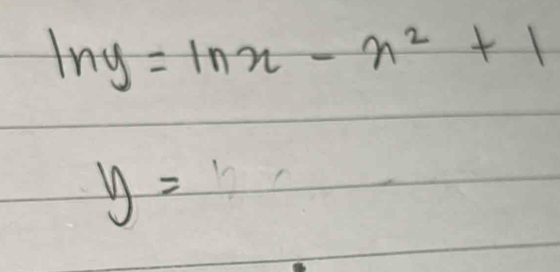 lny = lnx - x² + 1
y =